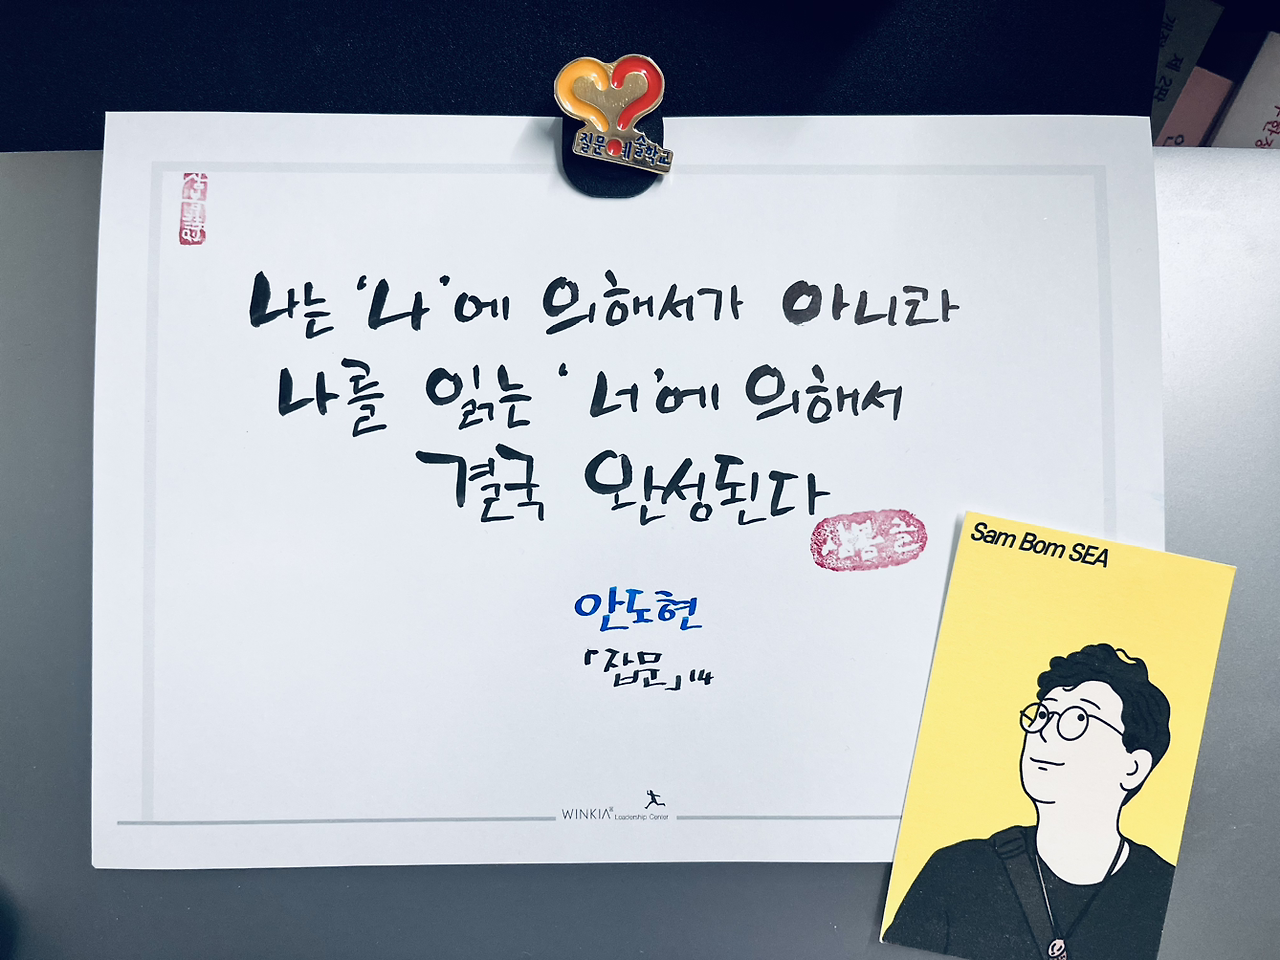 질문예술학교
나는 '나'에 의해서가 아니라
나를 읽는 '너'에 의해서
결국 완성된다
샘봄 골
안도현
「잡문」14
WINKIA Leadership Center
Sam Bom SEA
개정 제 2판